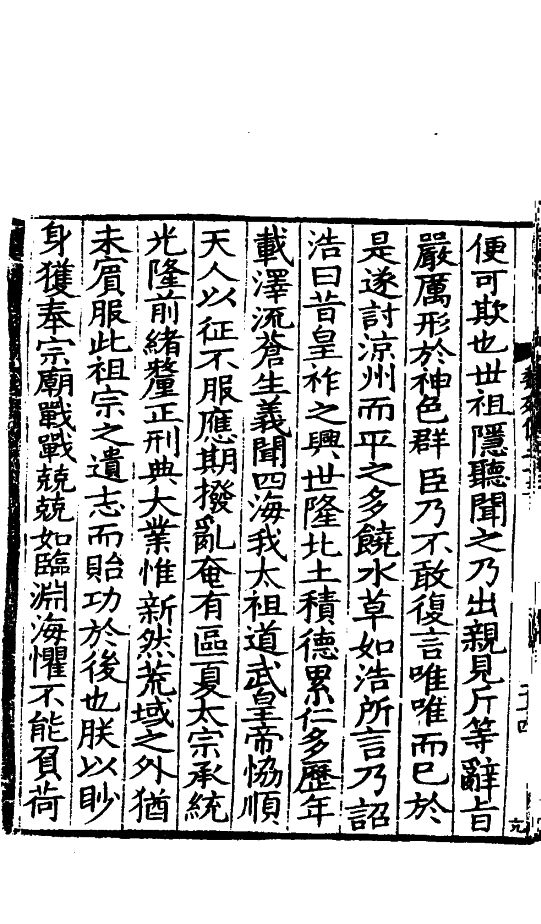 便可欺也世祖隱聽聞之乃出親見斤等辭旨
嚴厲形於神色群臣乃不敢復言唯唯而已於
是遂討涼州而平之多饒水草如浩所言乃詔
浩曰昔皇祚之興世隆北土積德累仁多歷年
載澤流蒼生義聞四海我太祖道武皇帝恊順
天人以征不服應期撥亂奄有區夏太宗承統
光隆前緒釐正刑典大業惟新然荒域之外猶
未賔服此祖宗之遺志而貽功於後也朕以眇
身獲奉宗廟戰戰兢兢如臨淵海懼不能負荷